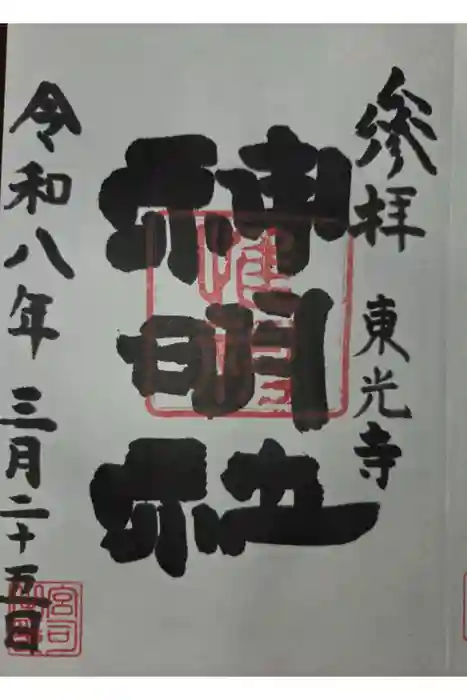 參拝 東光寺
神明社
令和八年 三月二十五日
宮司